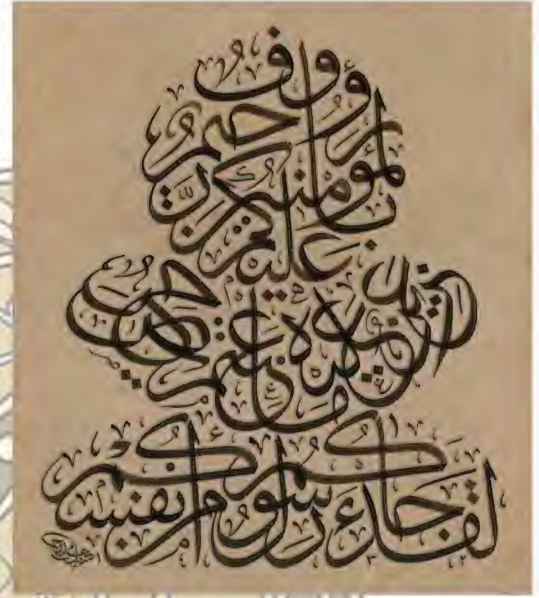 لقد جاءكم رسول من أنفسكم
عزيز عليه ما عنتم حريص
عليكم بالمؤمنين
رؤوف رحيم